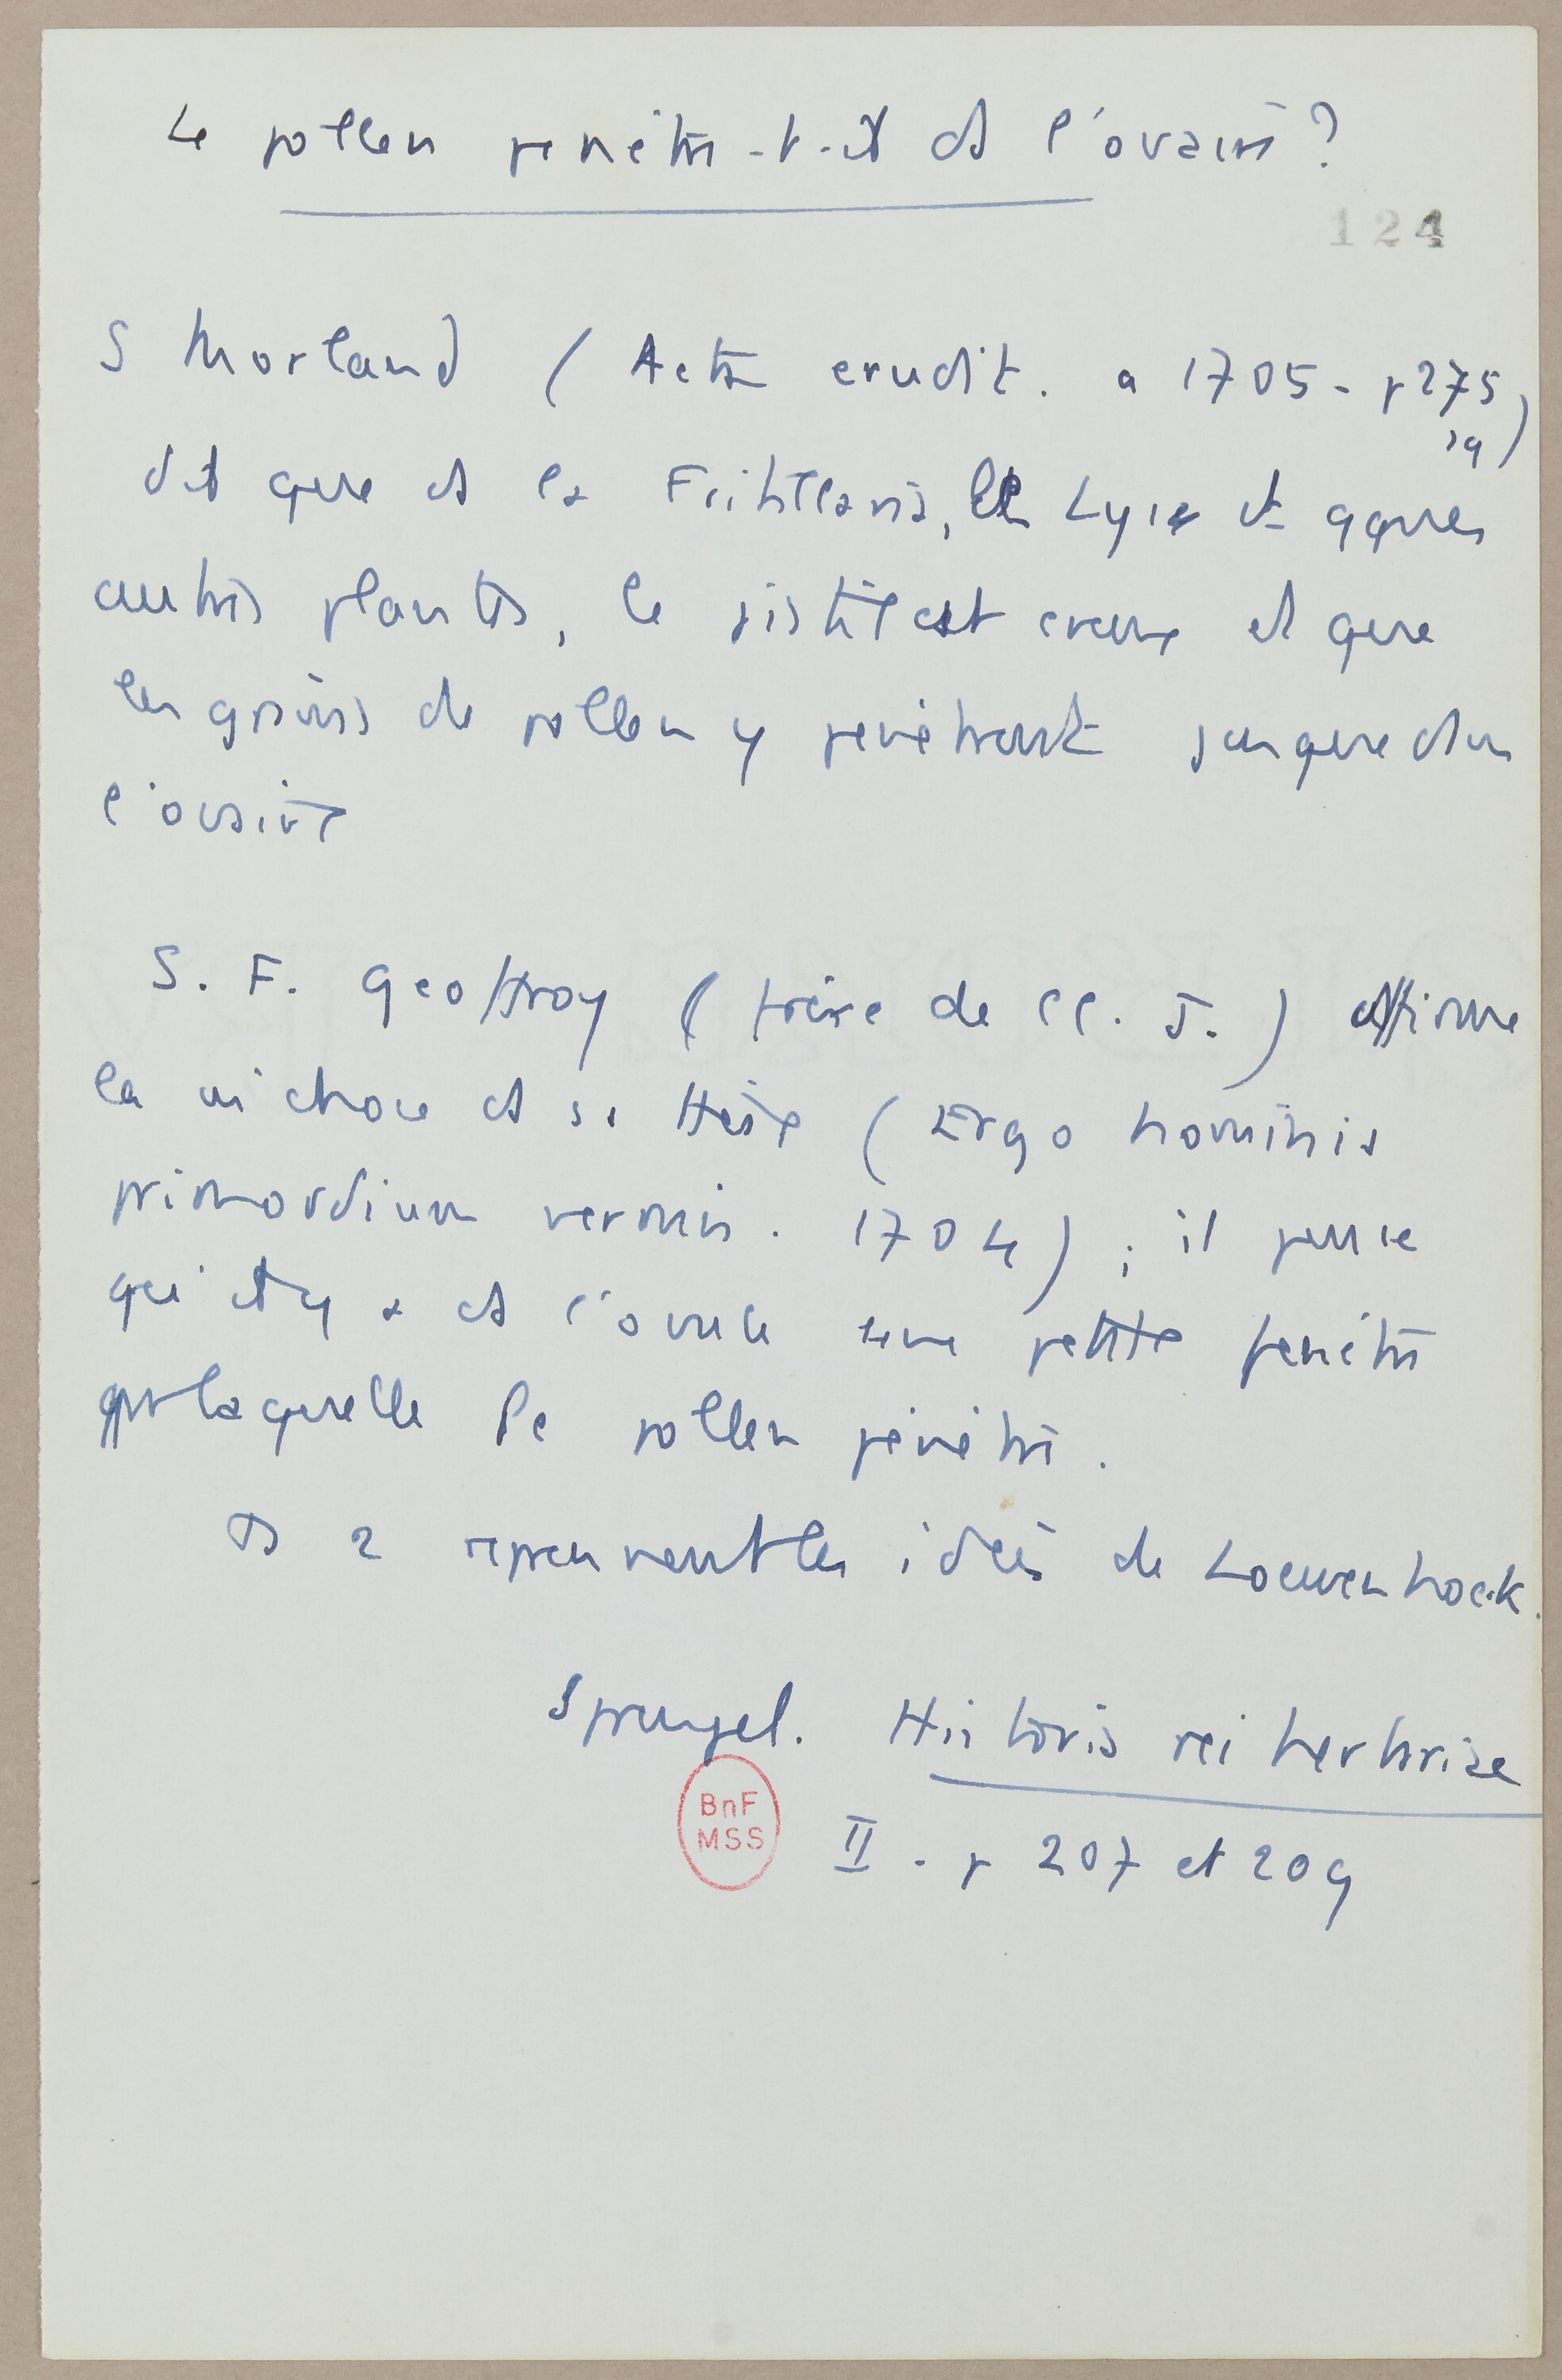 Le pollen pénètre-t-il ds l'ovaire ?
124
S Morland (Acta erudit. a 1705 - p 275
sq)
dit que ds la Fritillaria, le Lys et qques
autres plantes, le pistil est creux et que
les grains de pollen y pénètrent jusque dans
l'ovaire
S. F. Geoffroy (frère de Cl. J.) affirme
la mê chose ds sa thèse (Ergo hominis
primordium vermis. 1704) ; il pense
qu'il y a ds l'ovule une petite fenêtre
par laquelle le pollen pénètre.
Ts 2 reprennent les idées de Loewenhoek.
Sprengel. Historia rei herbariae
BnF
MSS
II - p 207 et 209